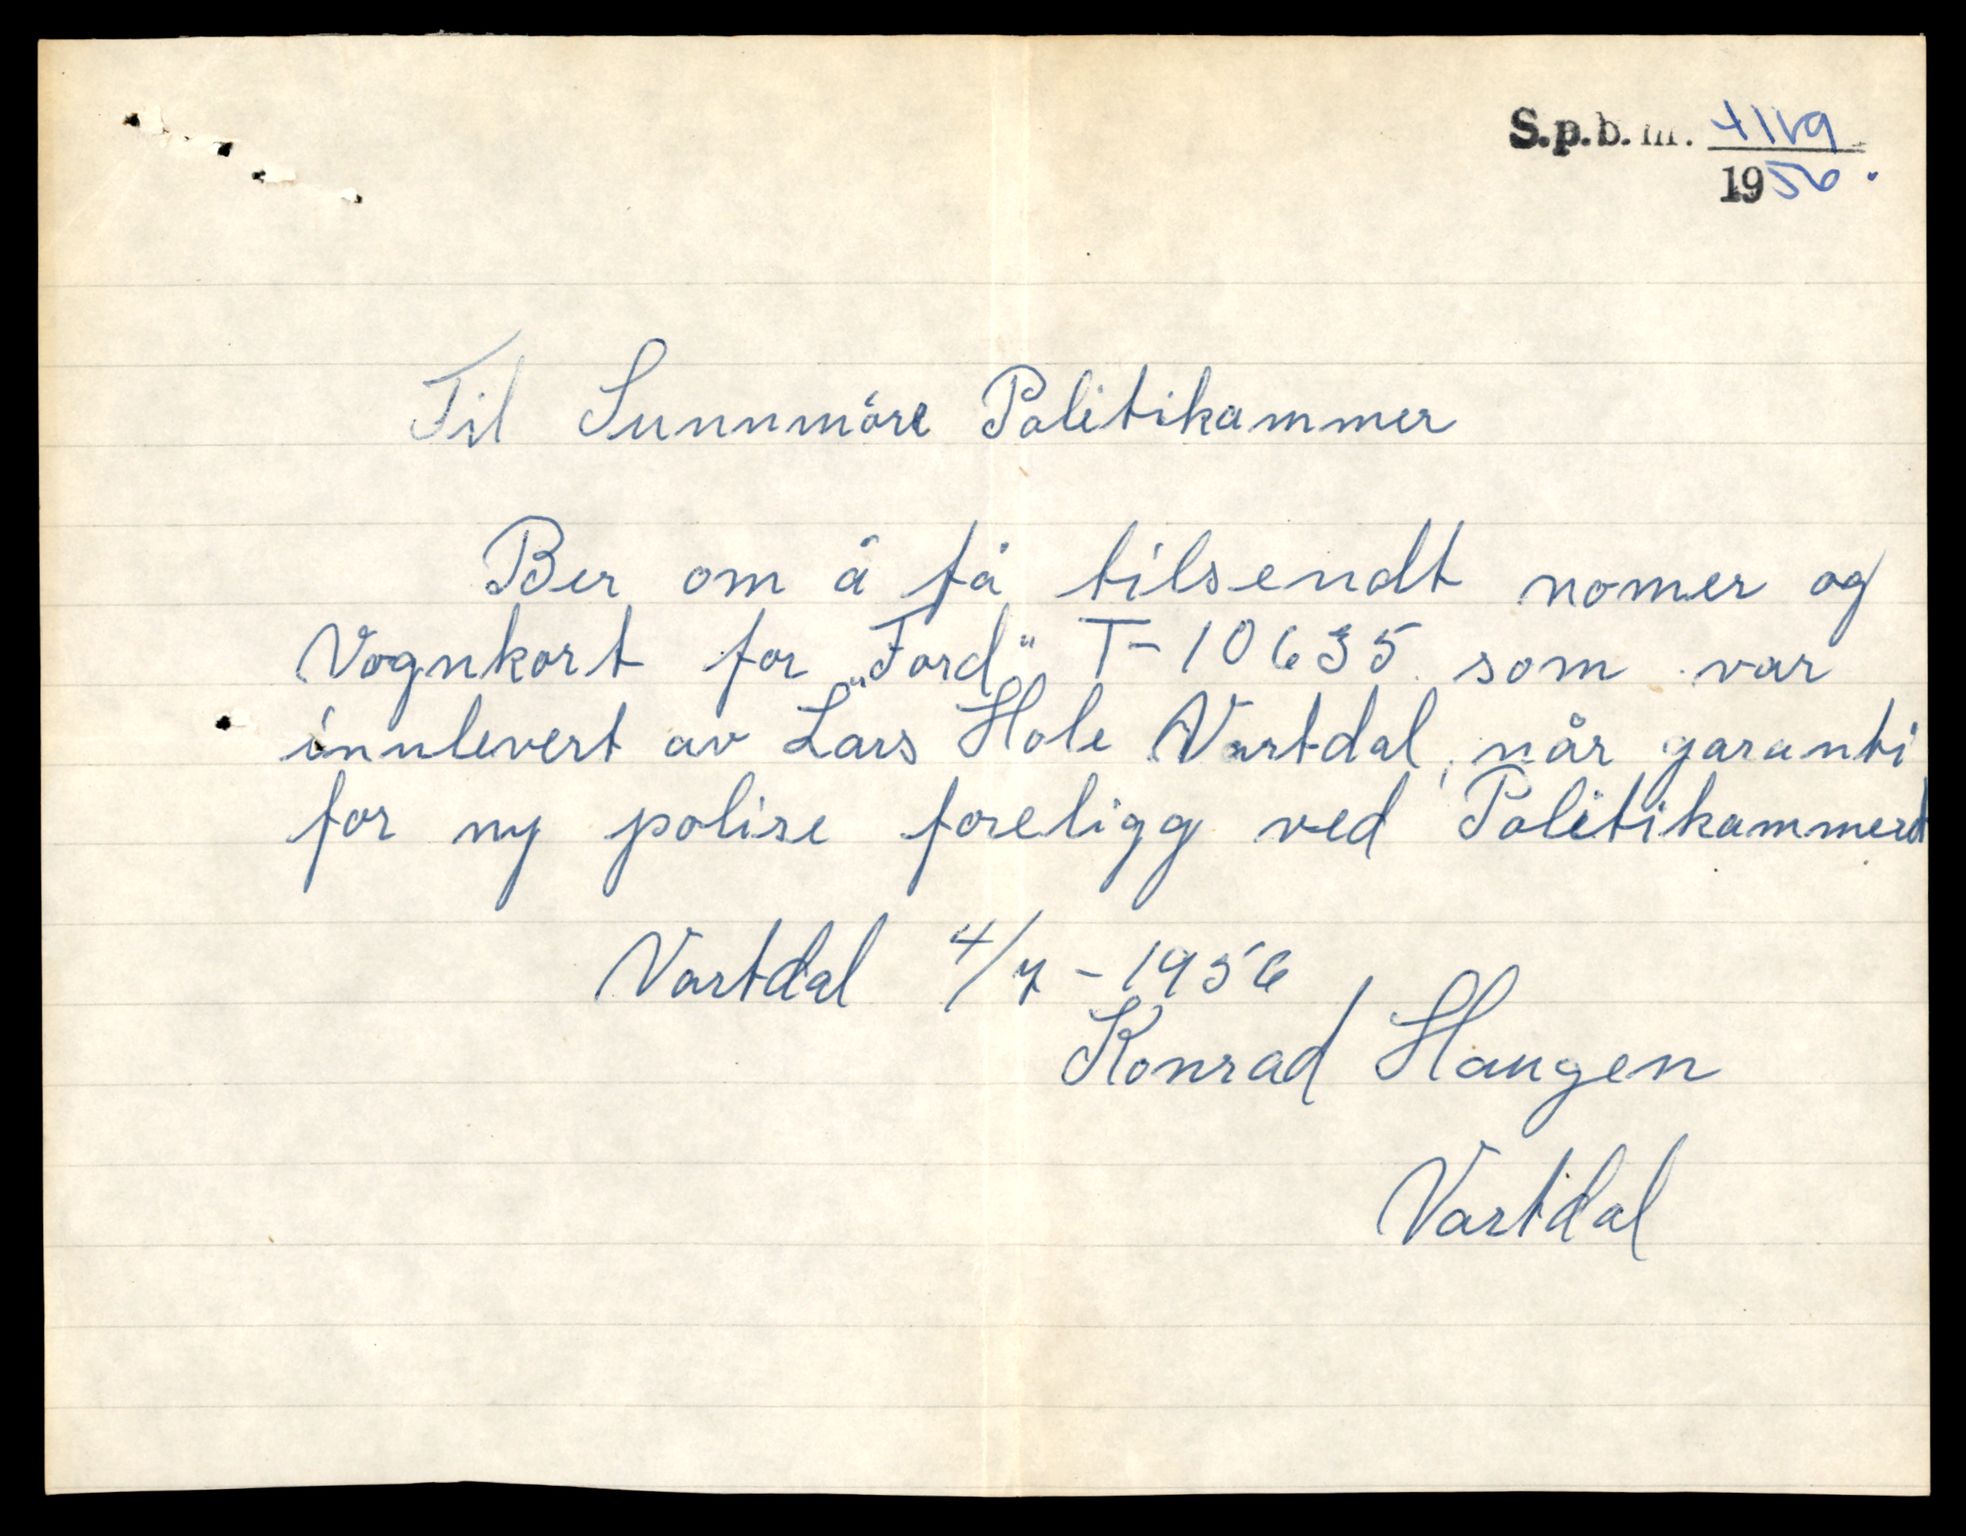 S.p.b. nr.
1956.
Til Sunnmöre Politikammer
Ber om å få tilsendt nomer og
Vognkort for „Ford" T-10635 som var
innlevert av Lars Hole Vartdal, når garanti
for ny polise foreligg ved Politikammeret
Vartdal 4/7 - 1956
Konrad Haugen
Vartdal